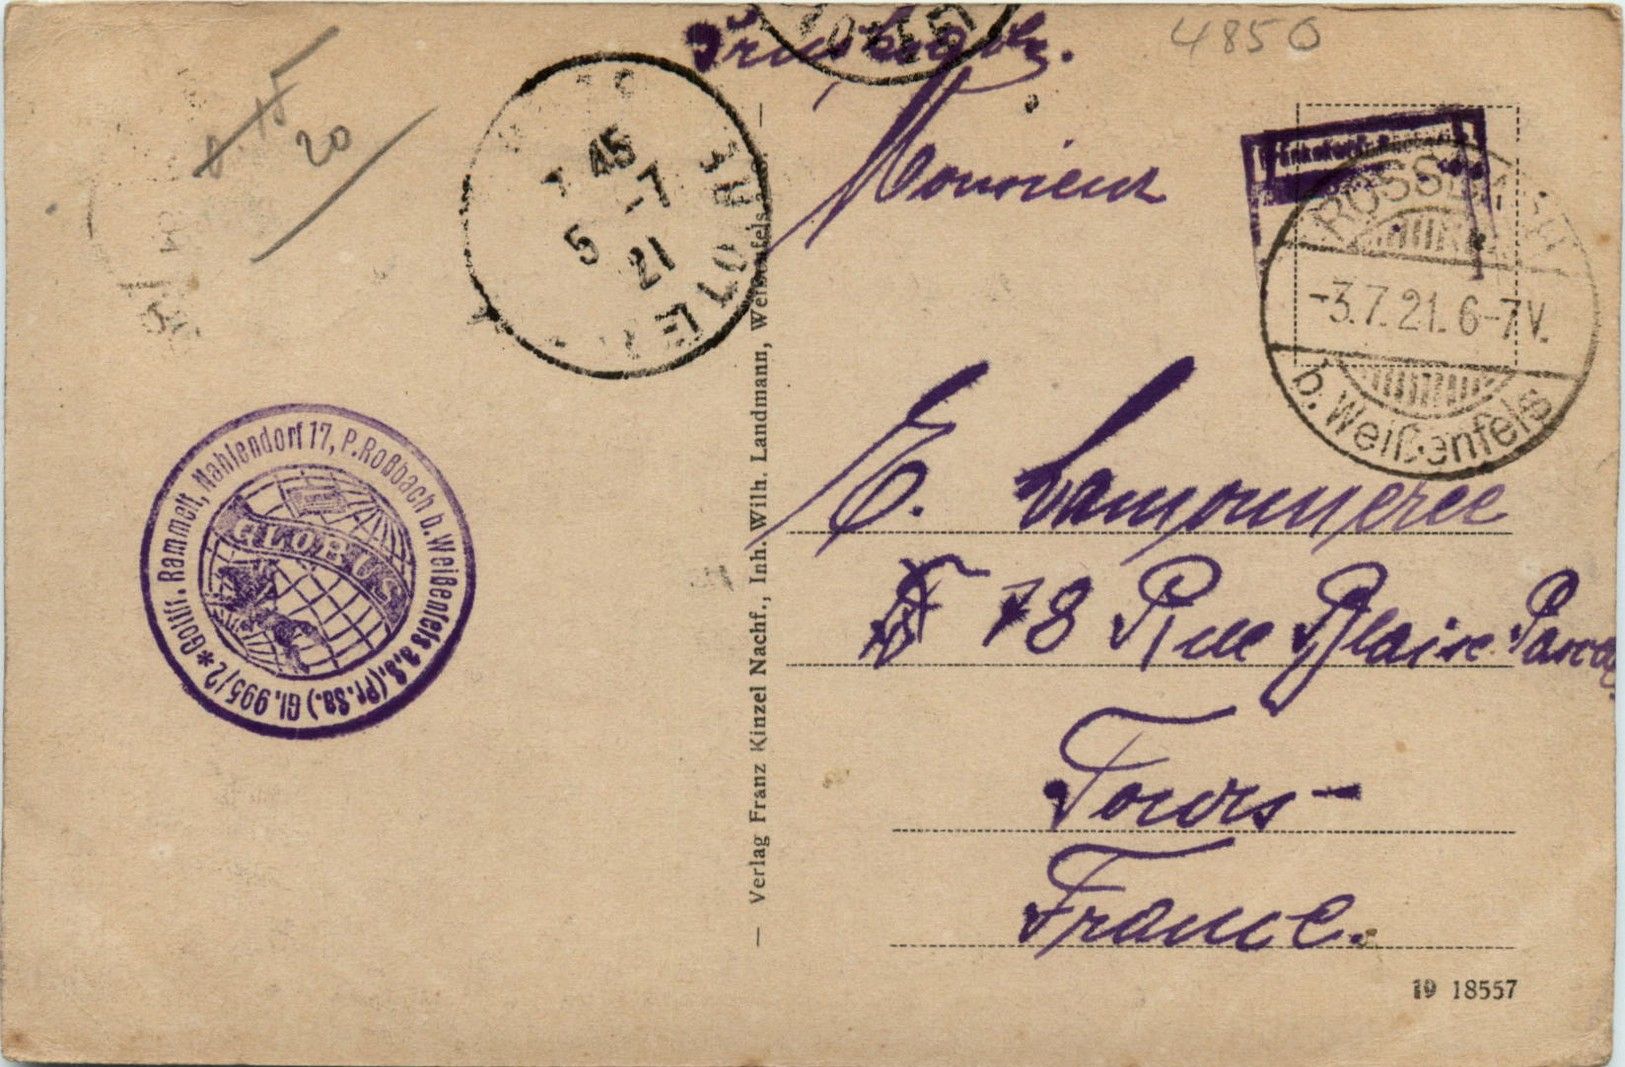 4850
15
20
Monsieur
E.
78 Rue Blaise Pascal
Tours-
France.
ROSSBACH
-3.7.21. 6-7V.
b. Weißenfels
7 45
5 -7
21
Gottfr. Rammelt, Mahlendorf 17, P. Roßbach b. Weißenfels a.S. (Pr. Sa.) Gl. 995/2 *
GLOBUS
— Verlag Franz Kinzel Nachf., Inh. Wilh. Landmann, Weissenfels a. S. —
19 18557